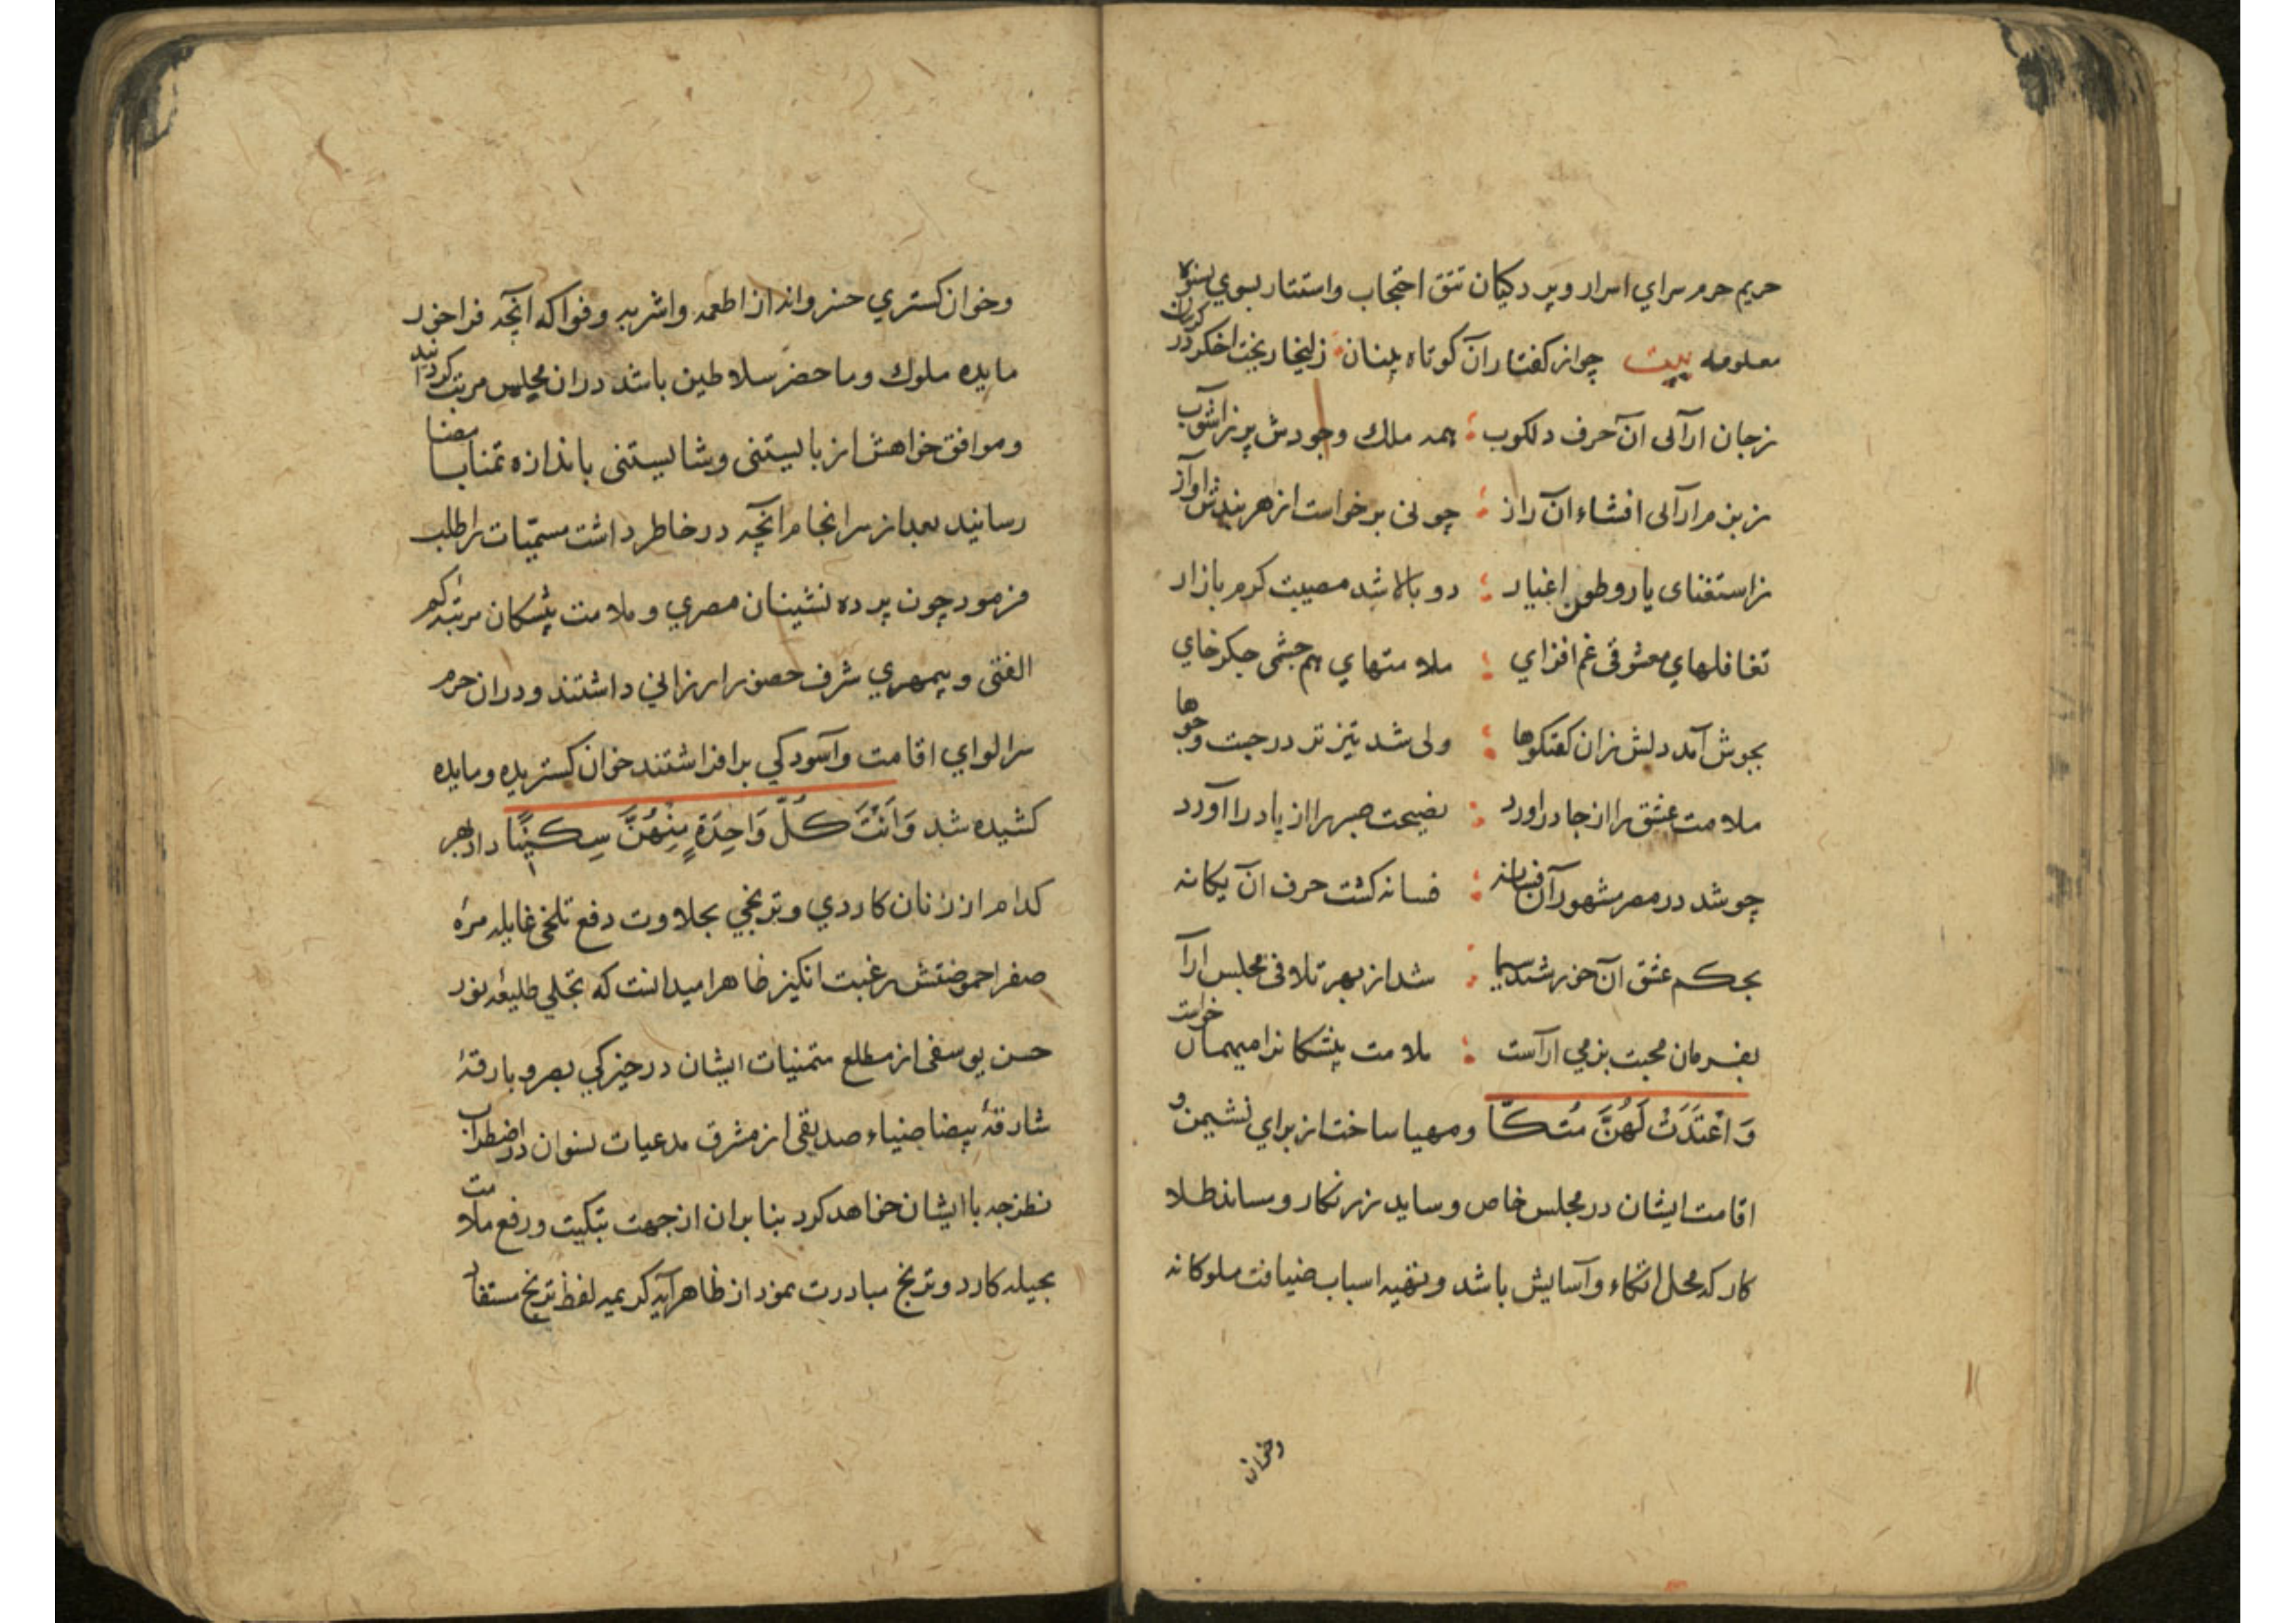 حریم حرم سرای اسرار و پردکیان تتق احتجاب و استتار بسوی نسوهٔ
معلومه بیت چو از کفتار آن کوتاه بینان زلیخا ریخت اخکر در کریبان
ز جان ارآلی ان حرف دلکوب همه ملك وجودش پر ز اشوب
ز بزم ارآلی افشاء آن راز چو نی برخواست از هر بندش اواز
ز استغنای یار و طعن اغیار دو بالا شد مصیبت کرم بازار
تغافلهای معشوقی غم افزای ملامتهای هم جشمی جکر خای
بجوش آمد دلش زان کفتکوها ولی شد تیز تر در جست و جوها
ملامت عشق را از جا دراورد نصیحت صبر را از پا درآورد
چو شد در مصر مشهور آن فسانه فسانه کشت حرف ان یکانه
بحکم عشق آن خورشید سیما شد از بهر تلافی مجلس ارآ
بفرمان محبت بزمی ارآست ملامت پیشکانرا میهمان خواست
وَ اعْتَدَتْ لَهُنَّ مُتَكَّأ و مهیا ساخت از برای نشیمن و
اقامت ایشان در مجلس خاص وساید زرنکار و مساند طلا
کار که محل اتکاء و آسایش باشد و تهیه اسباب ضیافت ملوکانه
وخوان
وخوان کستری خسروانه از اطعمه و اشربه و فواکه آنچه فراخور
مایده ملوك و ما حضر سلاطین باشد دران مجلس مرتب کردانید
و موافق خواهش از بایستنی و شایستنی باندازه تمنا بامضا
رسانید بعد از سرانجام انچه در خاطر داشت مسمّیات را طلب
فرمود چون پرده نشینان مصری و ملامت پیشکان مرتبه کم
الفتی و بیمهری شرف حضور ارزانی داشتند و دران حرم
سرا لوای اقامت و آسودکی برافراشتند خوان کستریده و مایده
کشیده شد وَ اَتَتْ كُلَّ وَاحِدَةٍ مِنْهُنَّ سِكّينًا داد هر
کدام از زنان کاردی و ترنجی بحلاوت دفع تلخی غایله مرهٔ
صفرا حموضتش رغبت انکیز ظاهرا میدانست که تجلی طلیعهٔ نور
حسن یوسفی از مطلع متمنیات ایشان در خیرکی بصر و بارقهٔ
شارقهٔ بیضا ضیاء صدیقی از مشرق مدعیات نسوان در اضطراب
نظر چه با ایشان خواهد کرد بنا بران از جهت تبکیت و رفع ملامت
بحیله کارد و ترنج مبادرت نمود از ظاهر آیه کریمه لفظ ترنج مستفاد